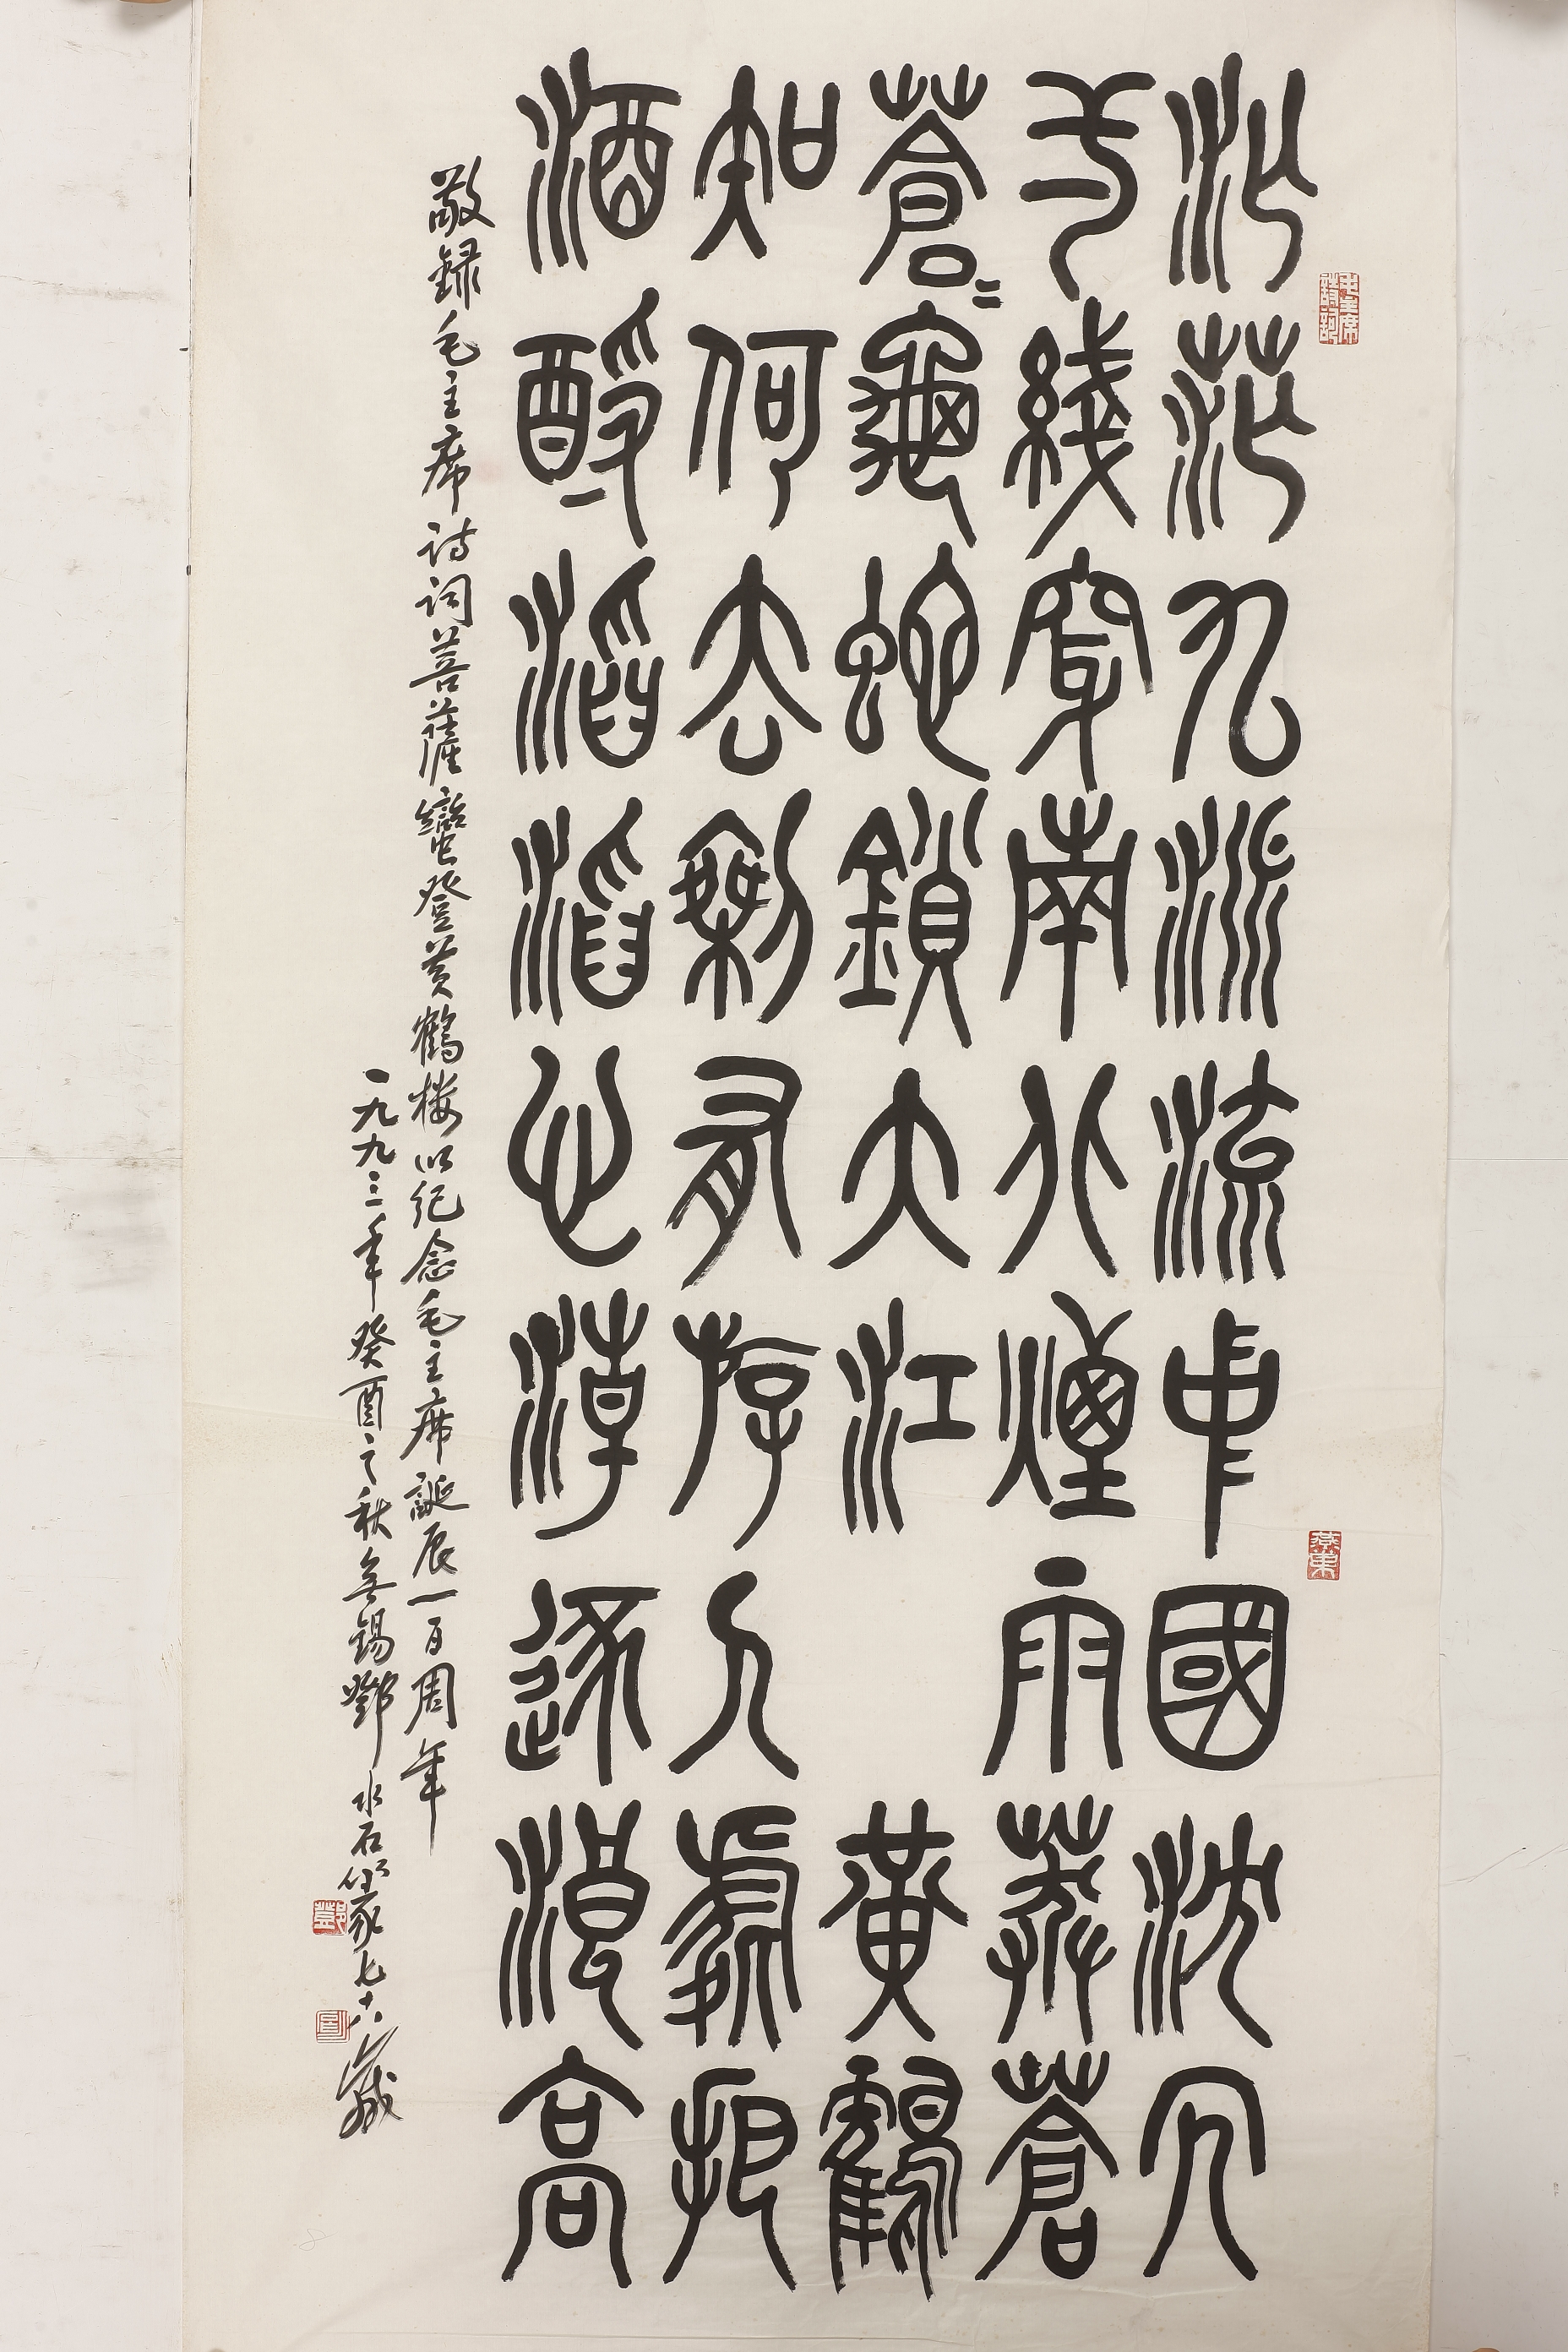 茫茫九派流中國沈冘
一綫穿南北煙雨莽蒼
蒼〻龜蛇鎖大江 黃鶴
知何去剩有游人處把
酒酹滔滔心潮逐浪高
敬録毛主席诗词菩薩蠻登黄鶴楼以纪念毛主席誕辰一百周年
一九九三年癸酉之秋無錫鄧水石篆七十六歲
毛主席詩詞